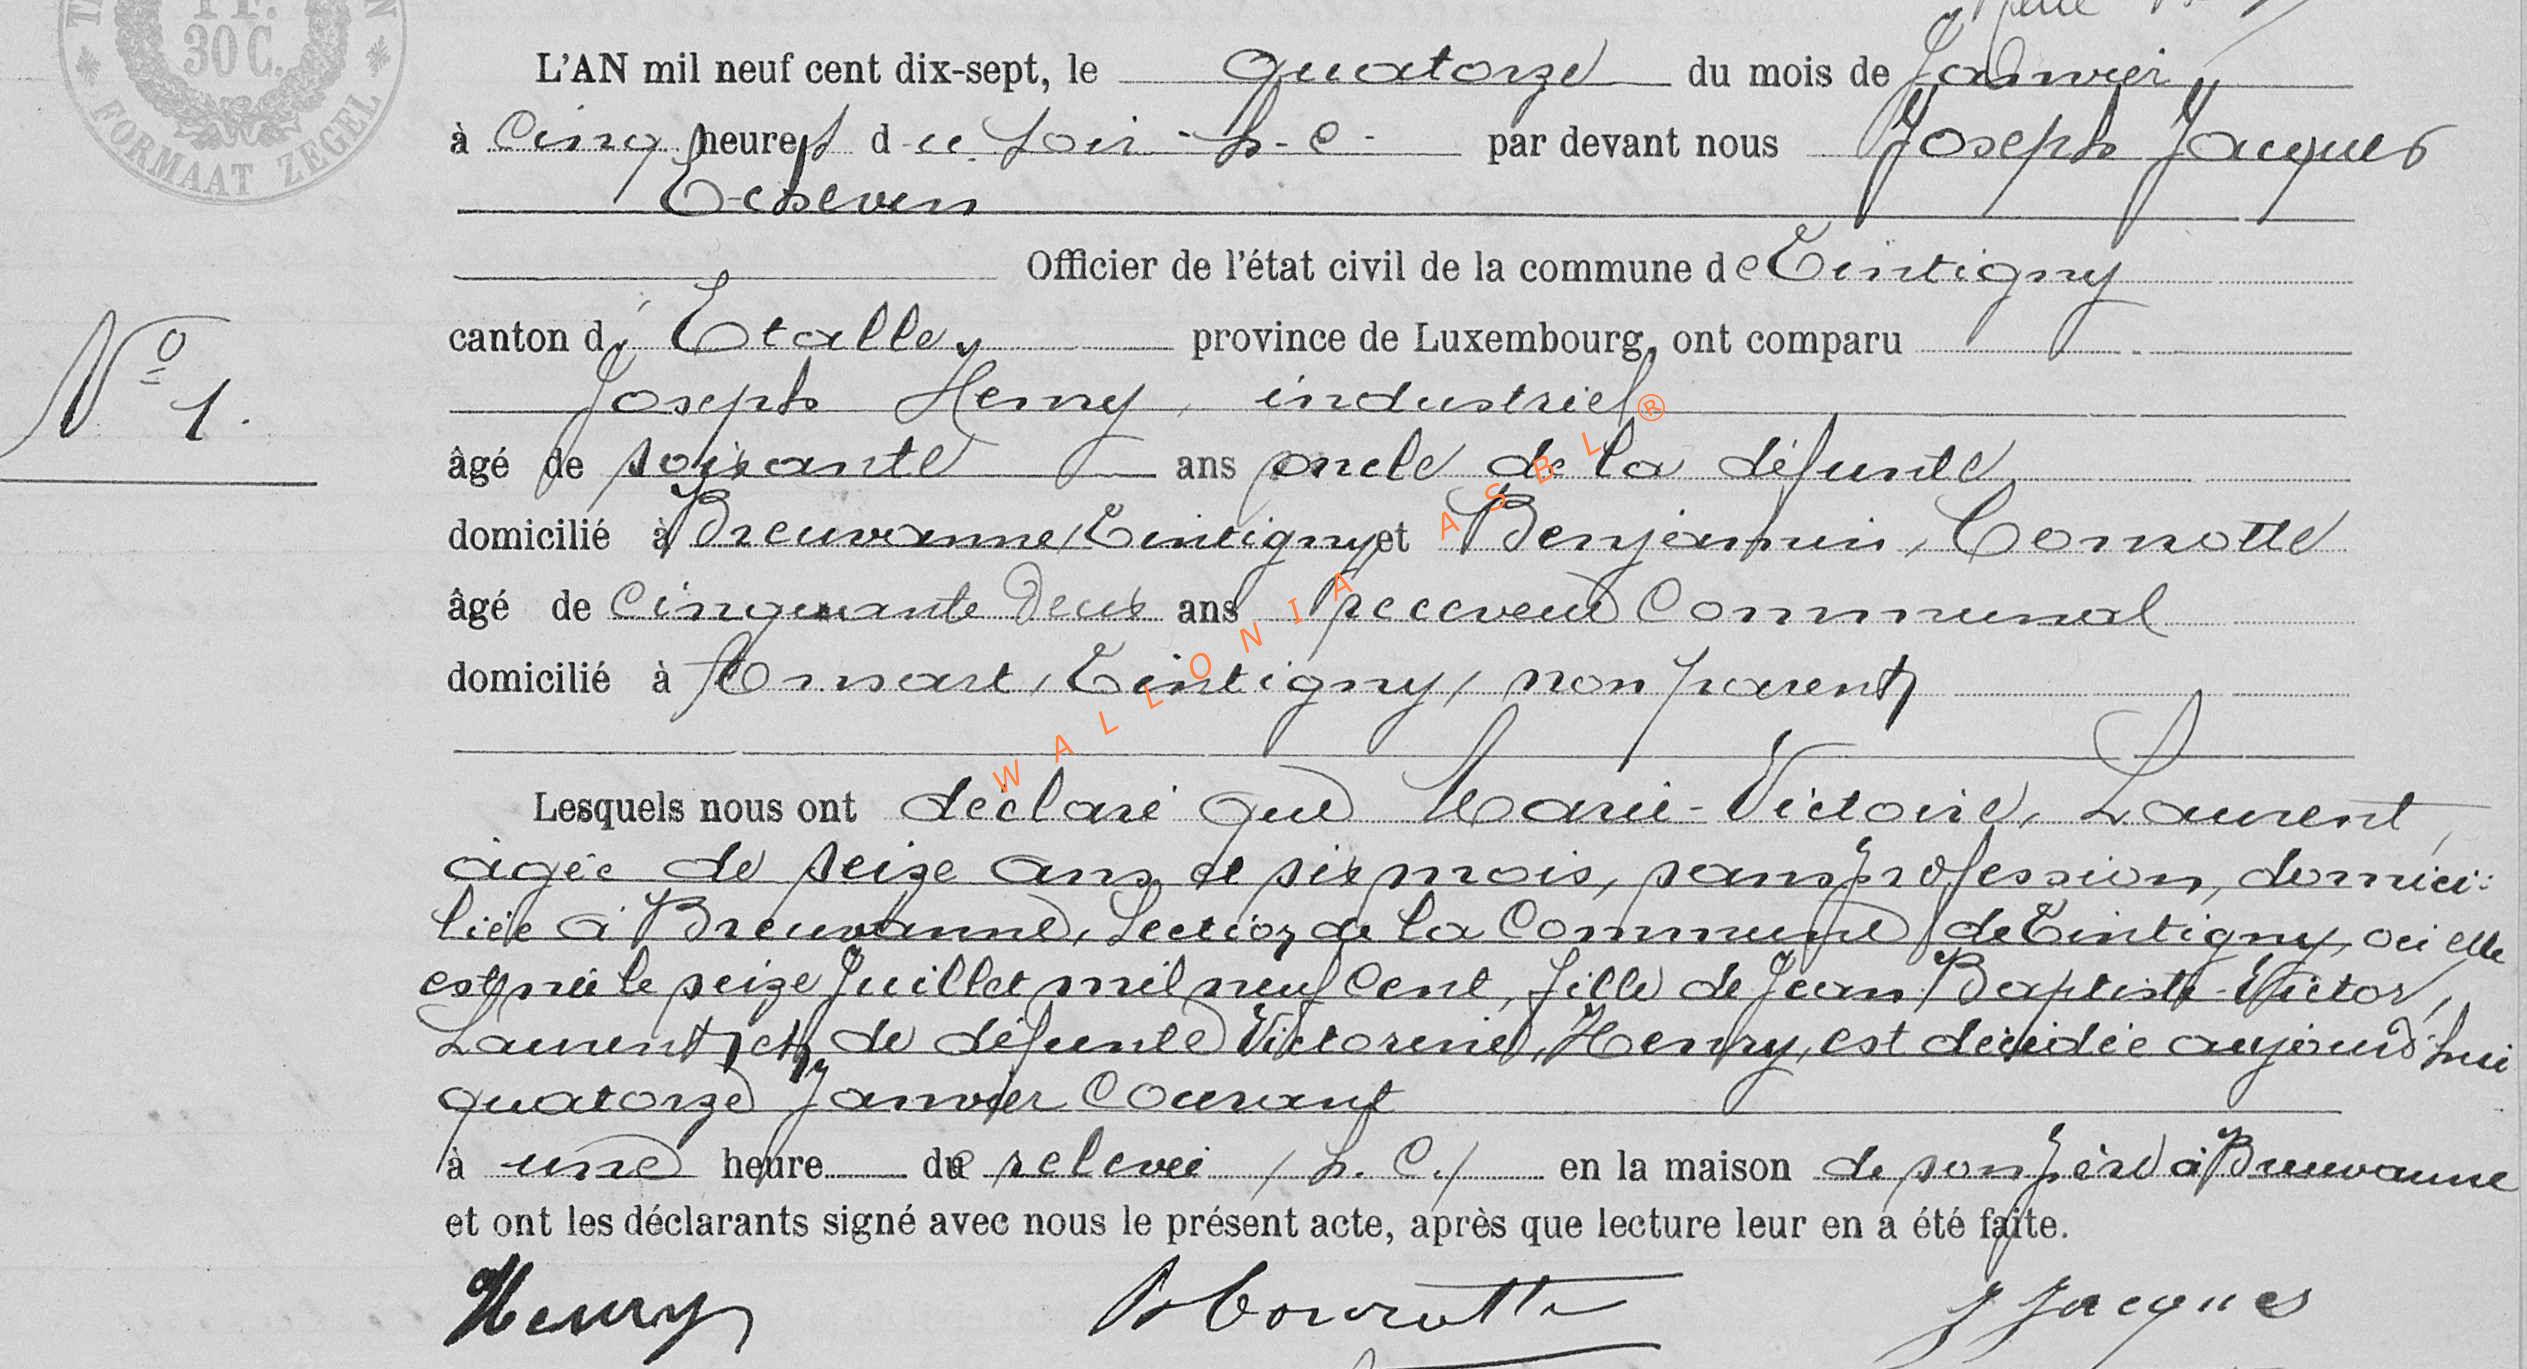 1 F.
30 C.
FORMAAT ZEGEL
L'AN mil neuf cent dix-sept, le quatorze du mois de Janvier
à Cinq heures du soir - h - c - par devant nous Joseph Jacques
Echevin
Officier de l'état civil de la commune de Tintigny
canton d'Etalle, province de Luxembourg, ont comparu
Joseph Henry, industriel
N° 1.
âgé de soixante ans oncle de la défunte
domicilié à Breuvanne, Tintigny, et Benjamin, Cornotte
âgé de Cinquante deux ans receveur Communal
domicilié à Ansart, Tintigny, non parent
Lesquels nous ont déclaré que Marie-Victoire, Laurent,
âgée de seize ans et six mois, sans profession, domici-
liée à Breuvanne, Section de la Commune de Tintigny, où elle
est née le seize Juillet mil neuf Cent, fille de Jean Baptiste-Victor,
Laurent, et de défunte Victorine, Henry, est décédée aujourd'hui
quatorze Janvier Courant
à une heure de relevée, h. C. en la maison de son père à Breuvanne
et ont les déclarants signé avec nous le présent acte, après que lecture leur en a été faite.
Henry B Cornotte J Jacques
WALLONIA ASBL ®